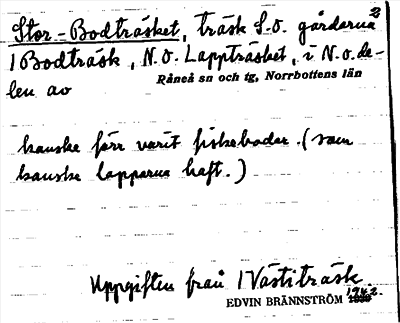 2
Stor-Bodträsket, träsk S.O. gårdarna
1 Bodträsk, N.O. Lappträsket, i N.O. de-
len av Råneå sn och tg, Norrbottens län
kanske förr varit fiskebodar. (som
kanske lapparna haft.)
Uppgiften från 1 Västiträsk
EDVIN BRÄNNSTRÖM 1942.